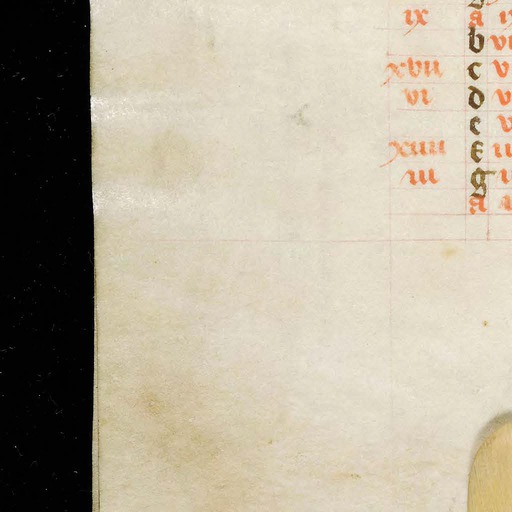 ix a ix
b vi
xvii c v
vi d v
e v
xiiii f ii
iii g i
a